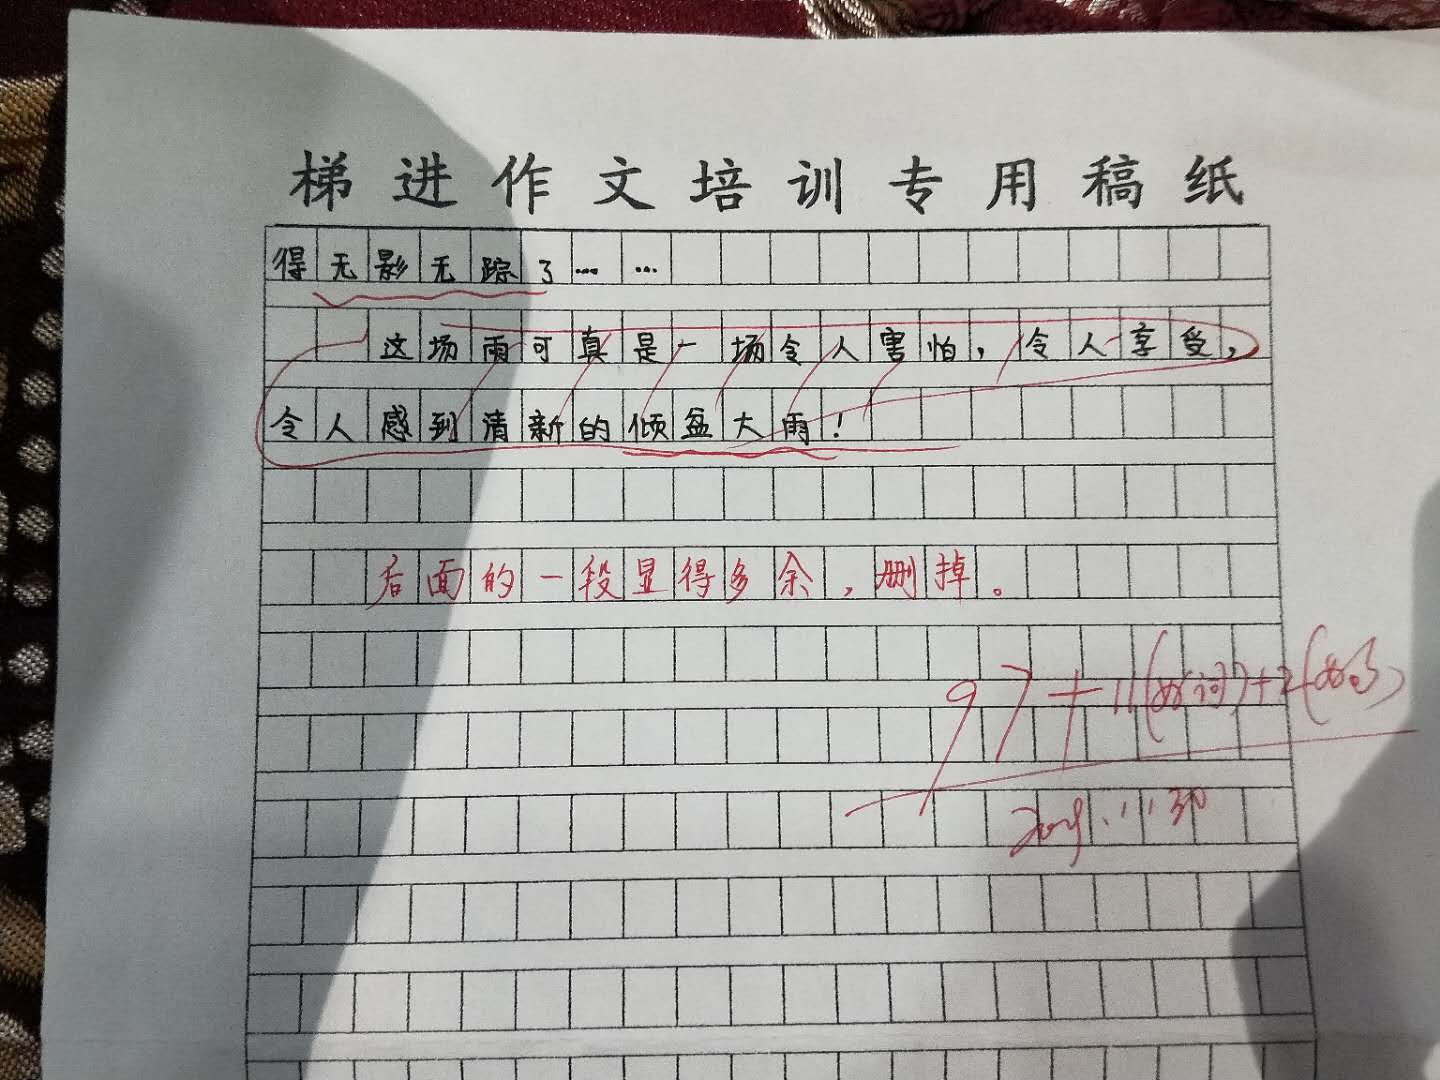 梯进作文培训专用稿纸
得无影无踪了……
这场雨可真是一场令人害怕，令人享受，
令人感到清新的倾盆大雨！
后面的一段显得多余，删掉。
97+11(好词)+2(
2019.11.30